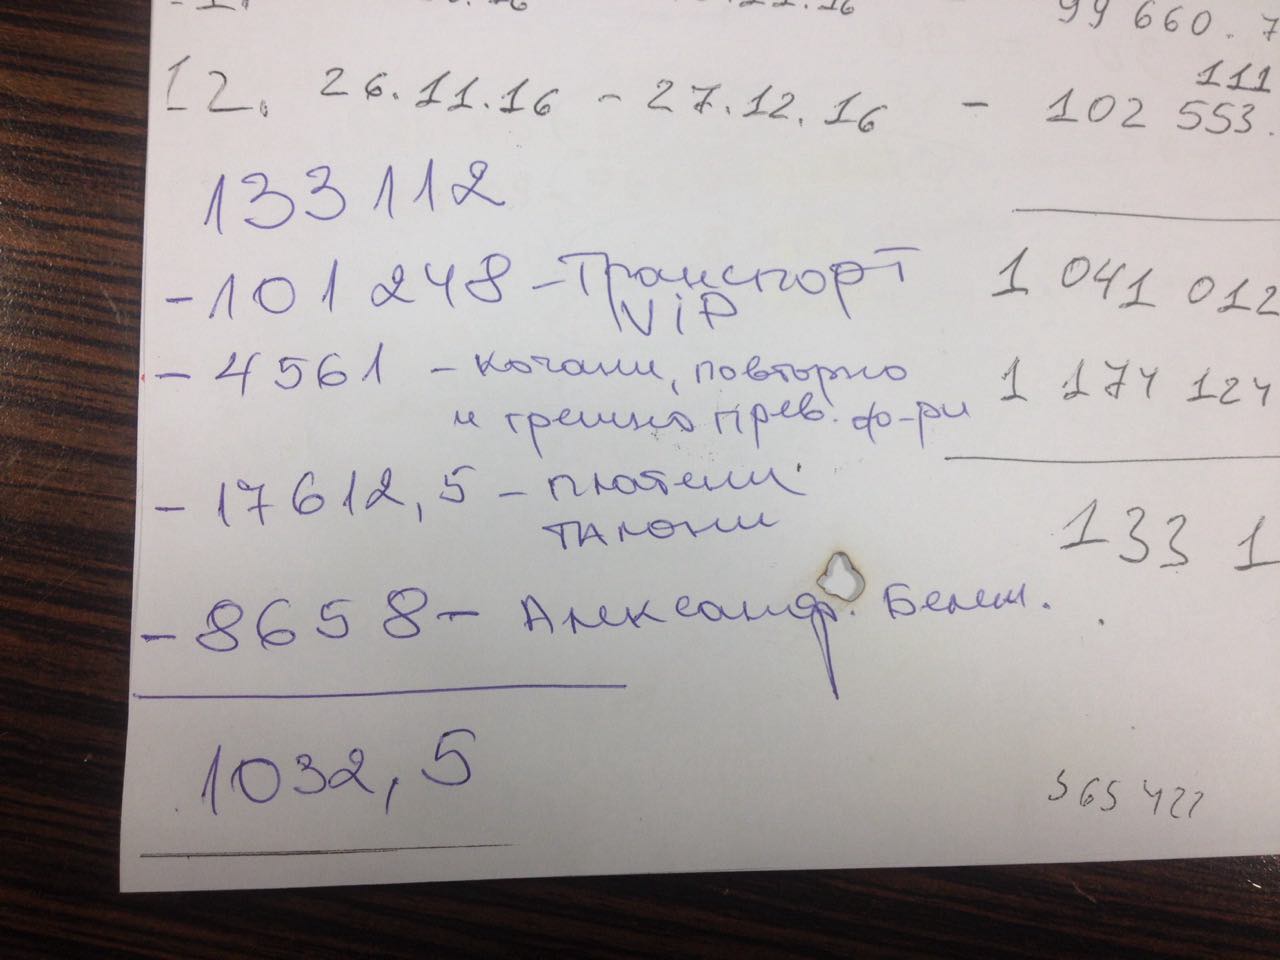 99 660. 7
111
12. 26.11.16 - 27.12.16 - 102 553.
133112
-101248 - Транспорт
ViP
1 041 012
- 4561 - кочани, повторно
1 174 124
и грешно прев. ф-ри
- 17612,5 - плотели
талони
133 1
- 8658 - Александ. Белеш.
1032,5